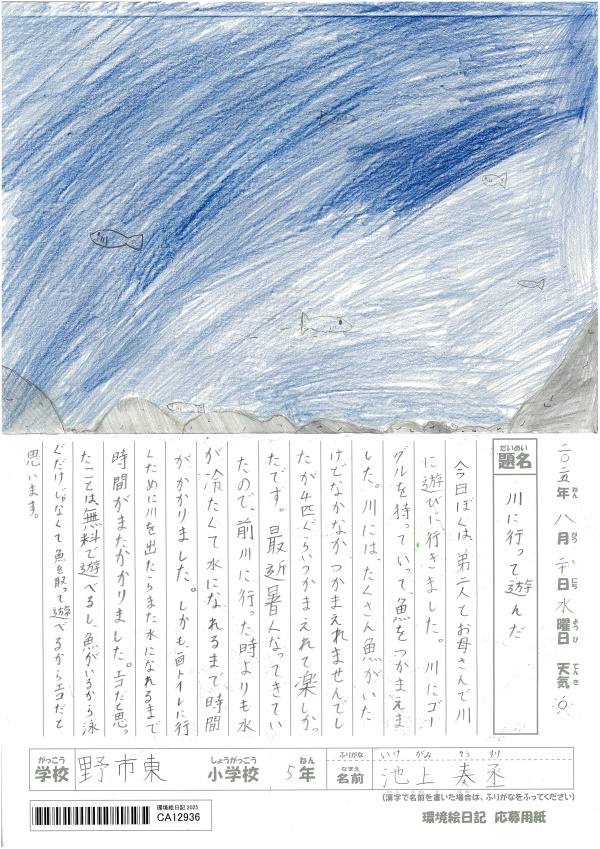 二〇二五年 八月 二十日 水曜日 天気
ねん がつ にち ようび てんき
だいめい
題名
川に行って遊んだ
今日ぼくは、弟二人とお母さんで川
に遊びに行きました。川にゴー
グルを持っていって、魚をつかまえま
した。川には、たくさん魚がいた
けどなかなかつかまえれませんでし
たが4匹ぐらいつかまえれて楽しかっ
たです。最近暑くなってきてい
たので、前川に行った時よりも水
が冷たくて水になれるまで時間
がかかりました。しかも、回トイレに行
くために川を出たらまた水になれるまで
時間がまたかかりました。エコだと思っ
たことは無料で遊べるし、魚がいるから泳
ぐだけじゃなくて魚を取って遊べるからエコだと
思います。
がっこう
学校
野市東
しょうがっこう
小学校
5年
ねん
ふりがな
いけ がみ そう すけ
なまえ
名前
池上 奏丞
(漢字で名前を書いた場合は、ふりがなをふってください)
環境絵日記 2025
CA12936
環境絵日記 応募用紙